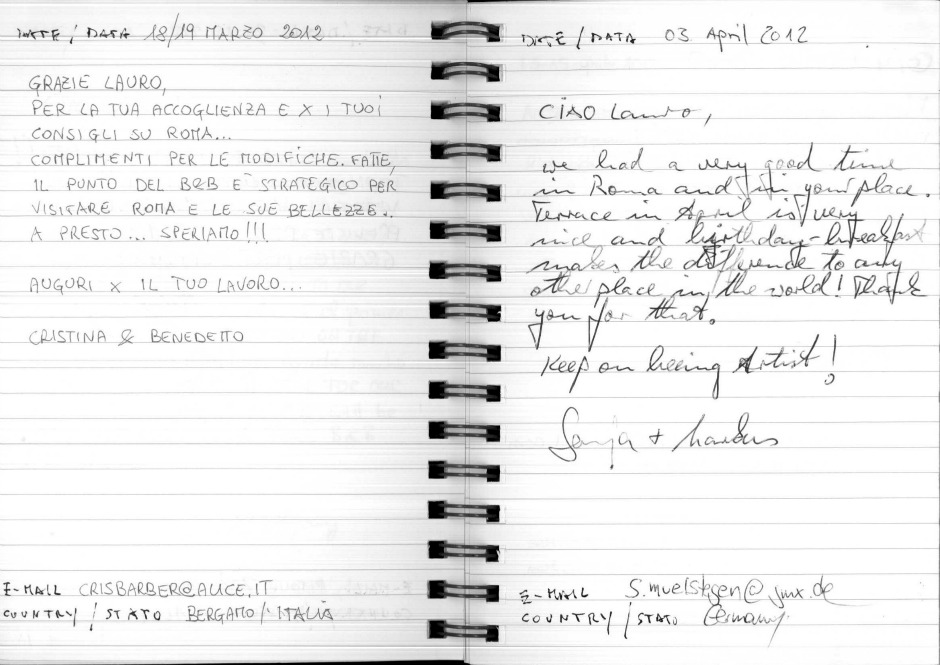 DATE / DATA 18/19 MARZO 2012
GRAZIE LAURO,
PER LA TUA ACCOGLIENZA E X I TUOI
CONSIGLI SU ROMA...
COMPLIMENTI PER LE MODIFICHE FATTE,
IL PUNTO DEL B&B E' STRATEGICO PER
VISITARE ROMA E LE SUE BELLEZZE..
A PRESTO... SPERIAMO!!!
AUGURI X IL TUO LAVORO...
CRISTINA & BENEDETTO
E-MAIL CRISBARBER@ALICE.IT
COUNTRY / STATO BERGAMO / ITALIA
DATE / DATA 03. April 2012
CIAO Lauro,
we had a very good time
in Roma and in your place.
Terrace in April is very
nice and birthday-breakfast
makes the difference to any
other place in the world! Thank
you for that.
Keep on beeing Artist!
Sonja + Markus
E-MAIL
COUNTRY / STATO Germany